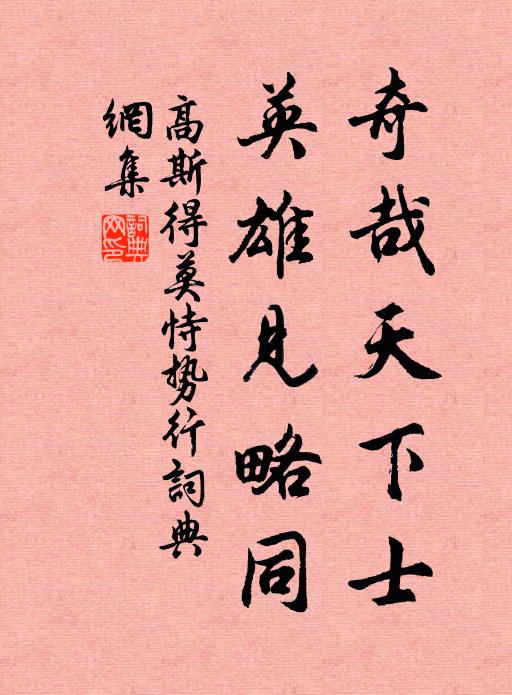 奇哉天下士
英雄見略同
高斯得莫恃勢行詞典
網集
詞典网印